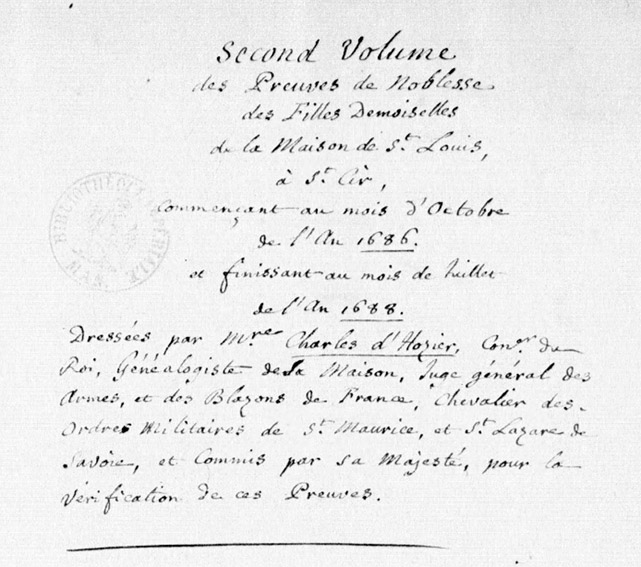 Second Volume
des Preuves de Noblesse
des Filles Demoiselles
de la Maison de St. Louis,
à St. Cir,
commençant au mois d'Octobre
de l'An 1686.
et finissant au mois de Juillet
de l'An 1688.
Dressées par Mre. Charles d'Hozier, Coner. du
Roi, Généalogiste de sa Maison, Juge général des
Armes, et des Blazons de France, Chevalier des
Ordres Militaires de St. Maurice, et St. Lazare de
Savoie, et Commis par sa Majesté, pour la
Vérification de ces Preuves.
BIBLIOTHÈQUE IMPÉRIALE
MAN.